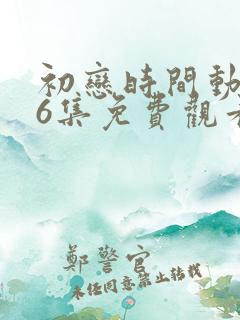 初戀時間動
6集免費觀看
鄭警官
未任同意禁止转载